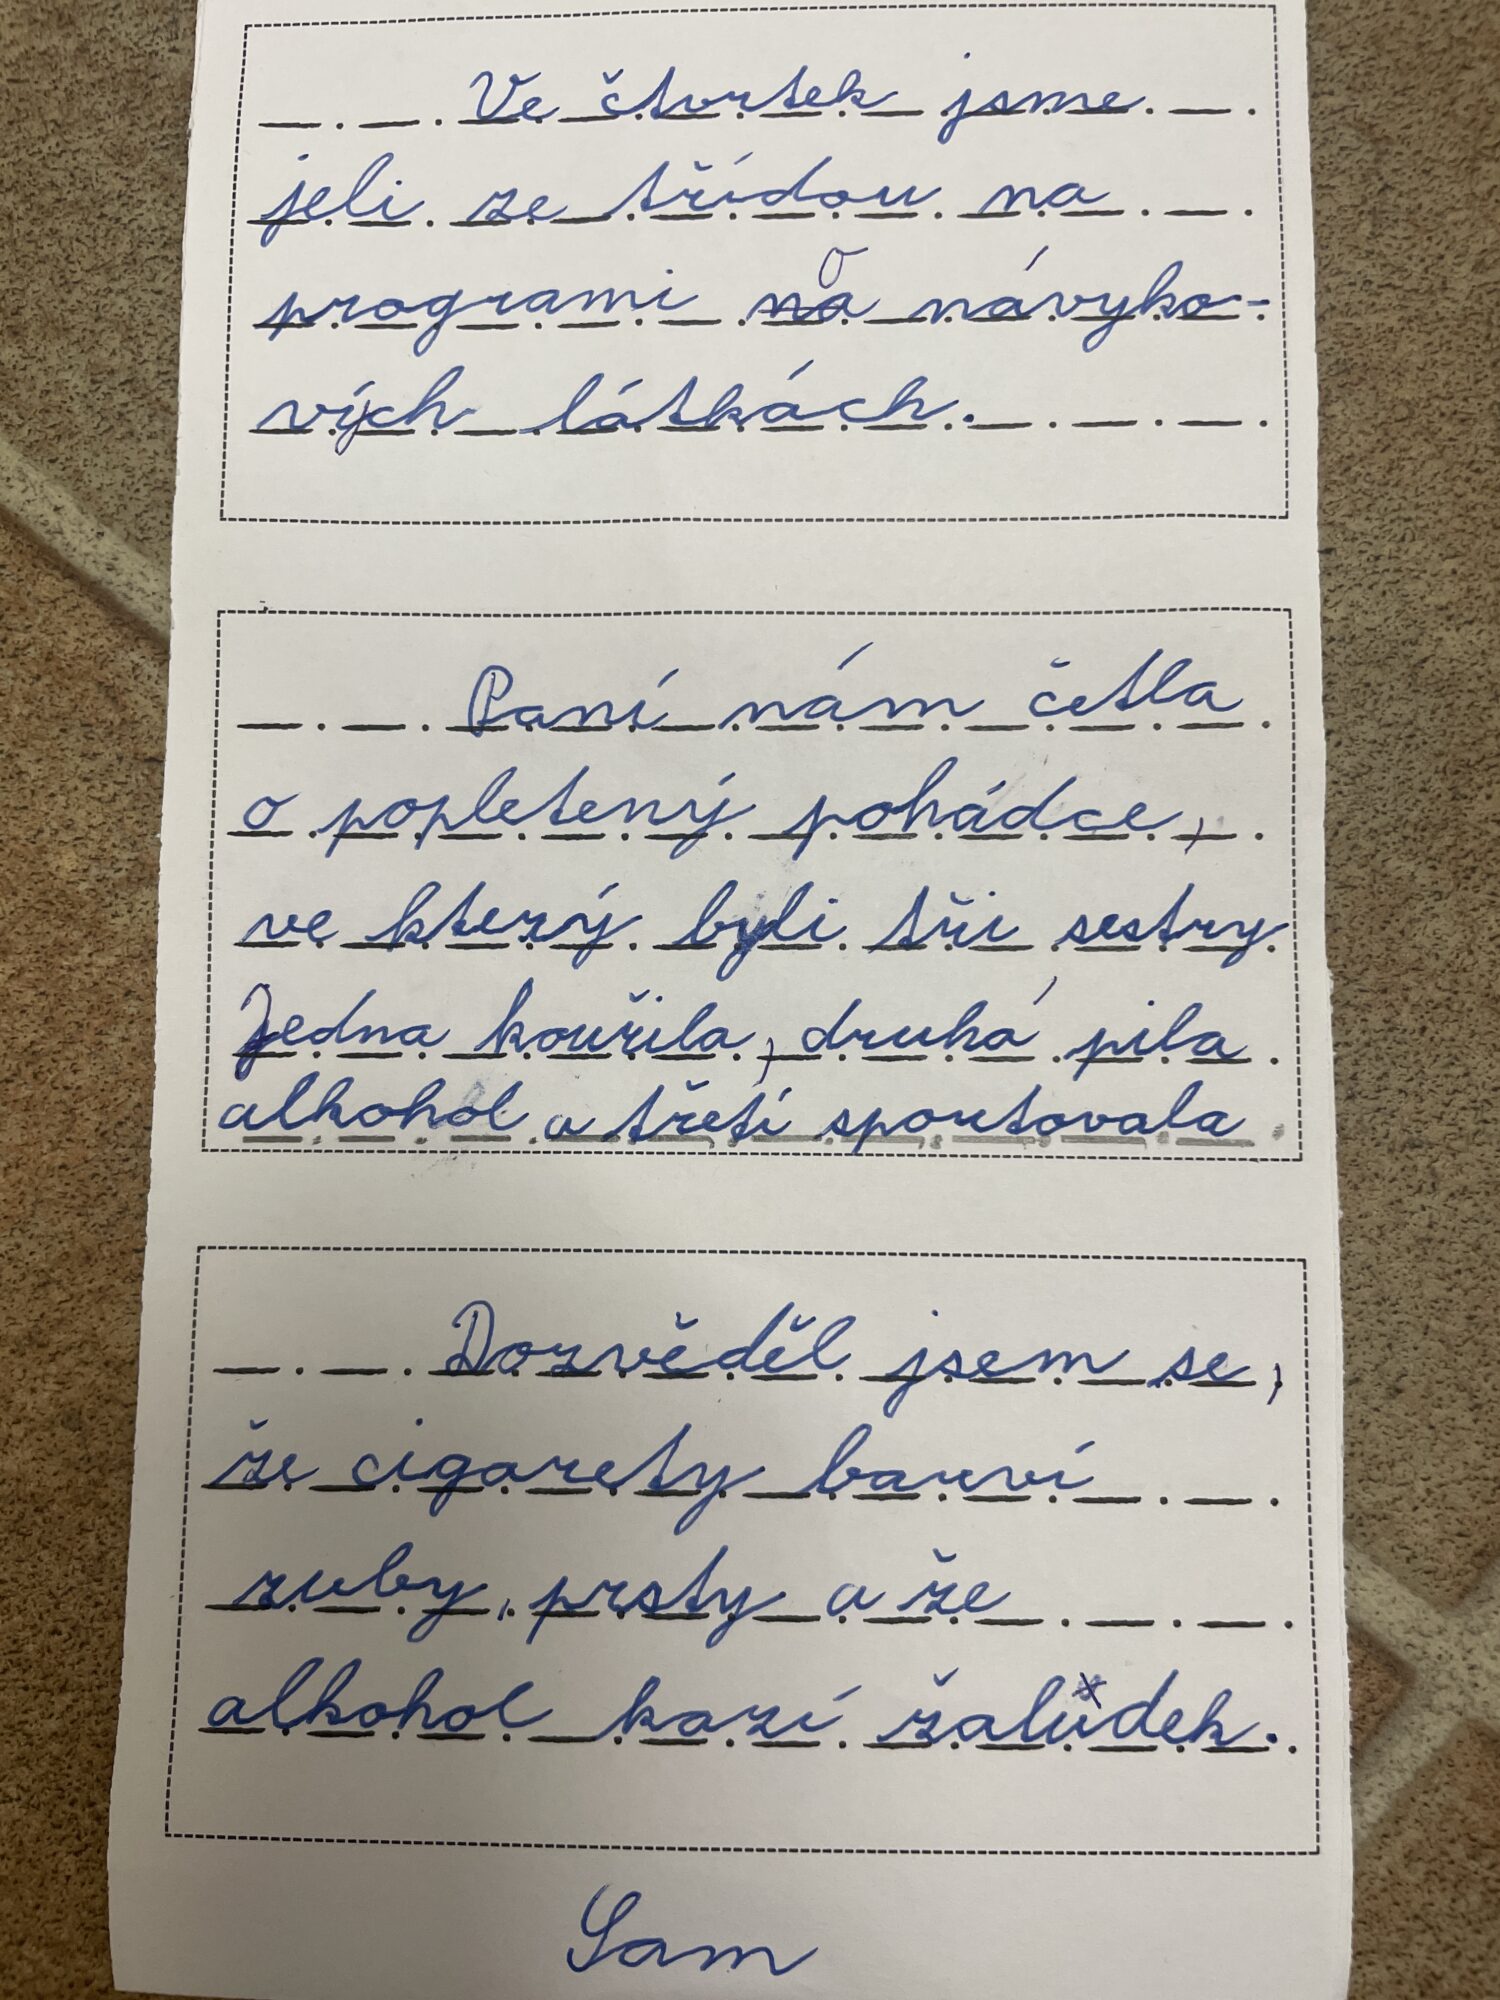 Ve čtvrtek jsme
jeli ze třídou na
programi o návyko-
vých látkách.
Paní nám četla
o popletený pohádce,
ve který byli tři sestry.
Jedna kouřila, druhá pila
alkohol a třetí sportovala
Dozvěděl jsem se,
že cigarety barví
zuby, prsty a že
alkohol kazí žaludek.
Sam